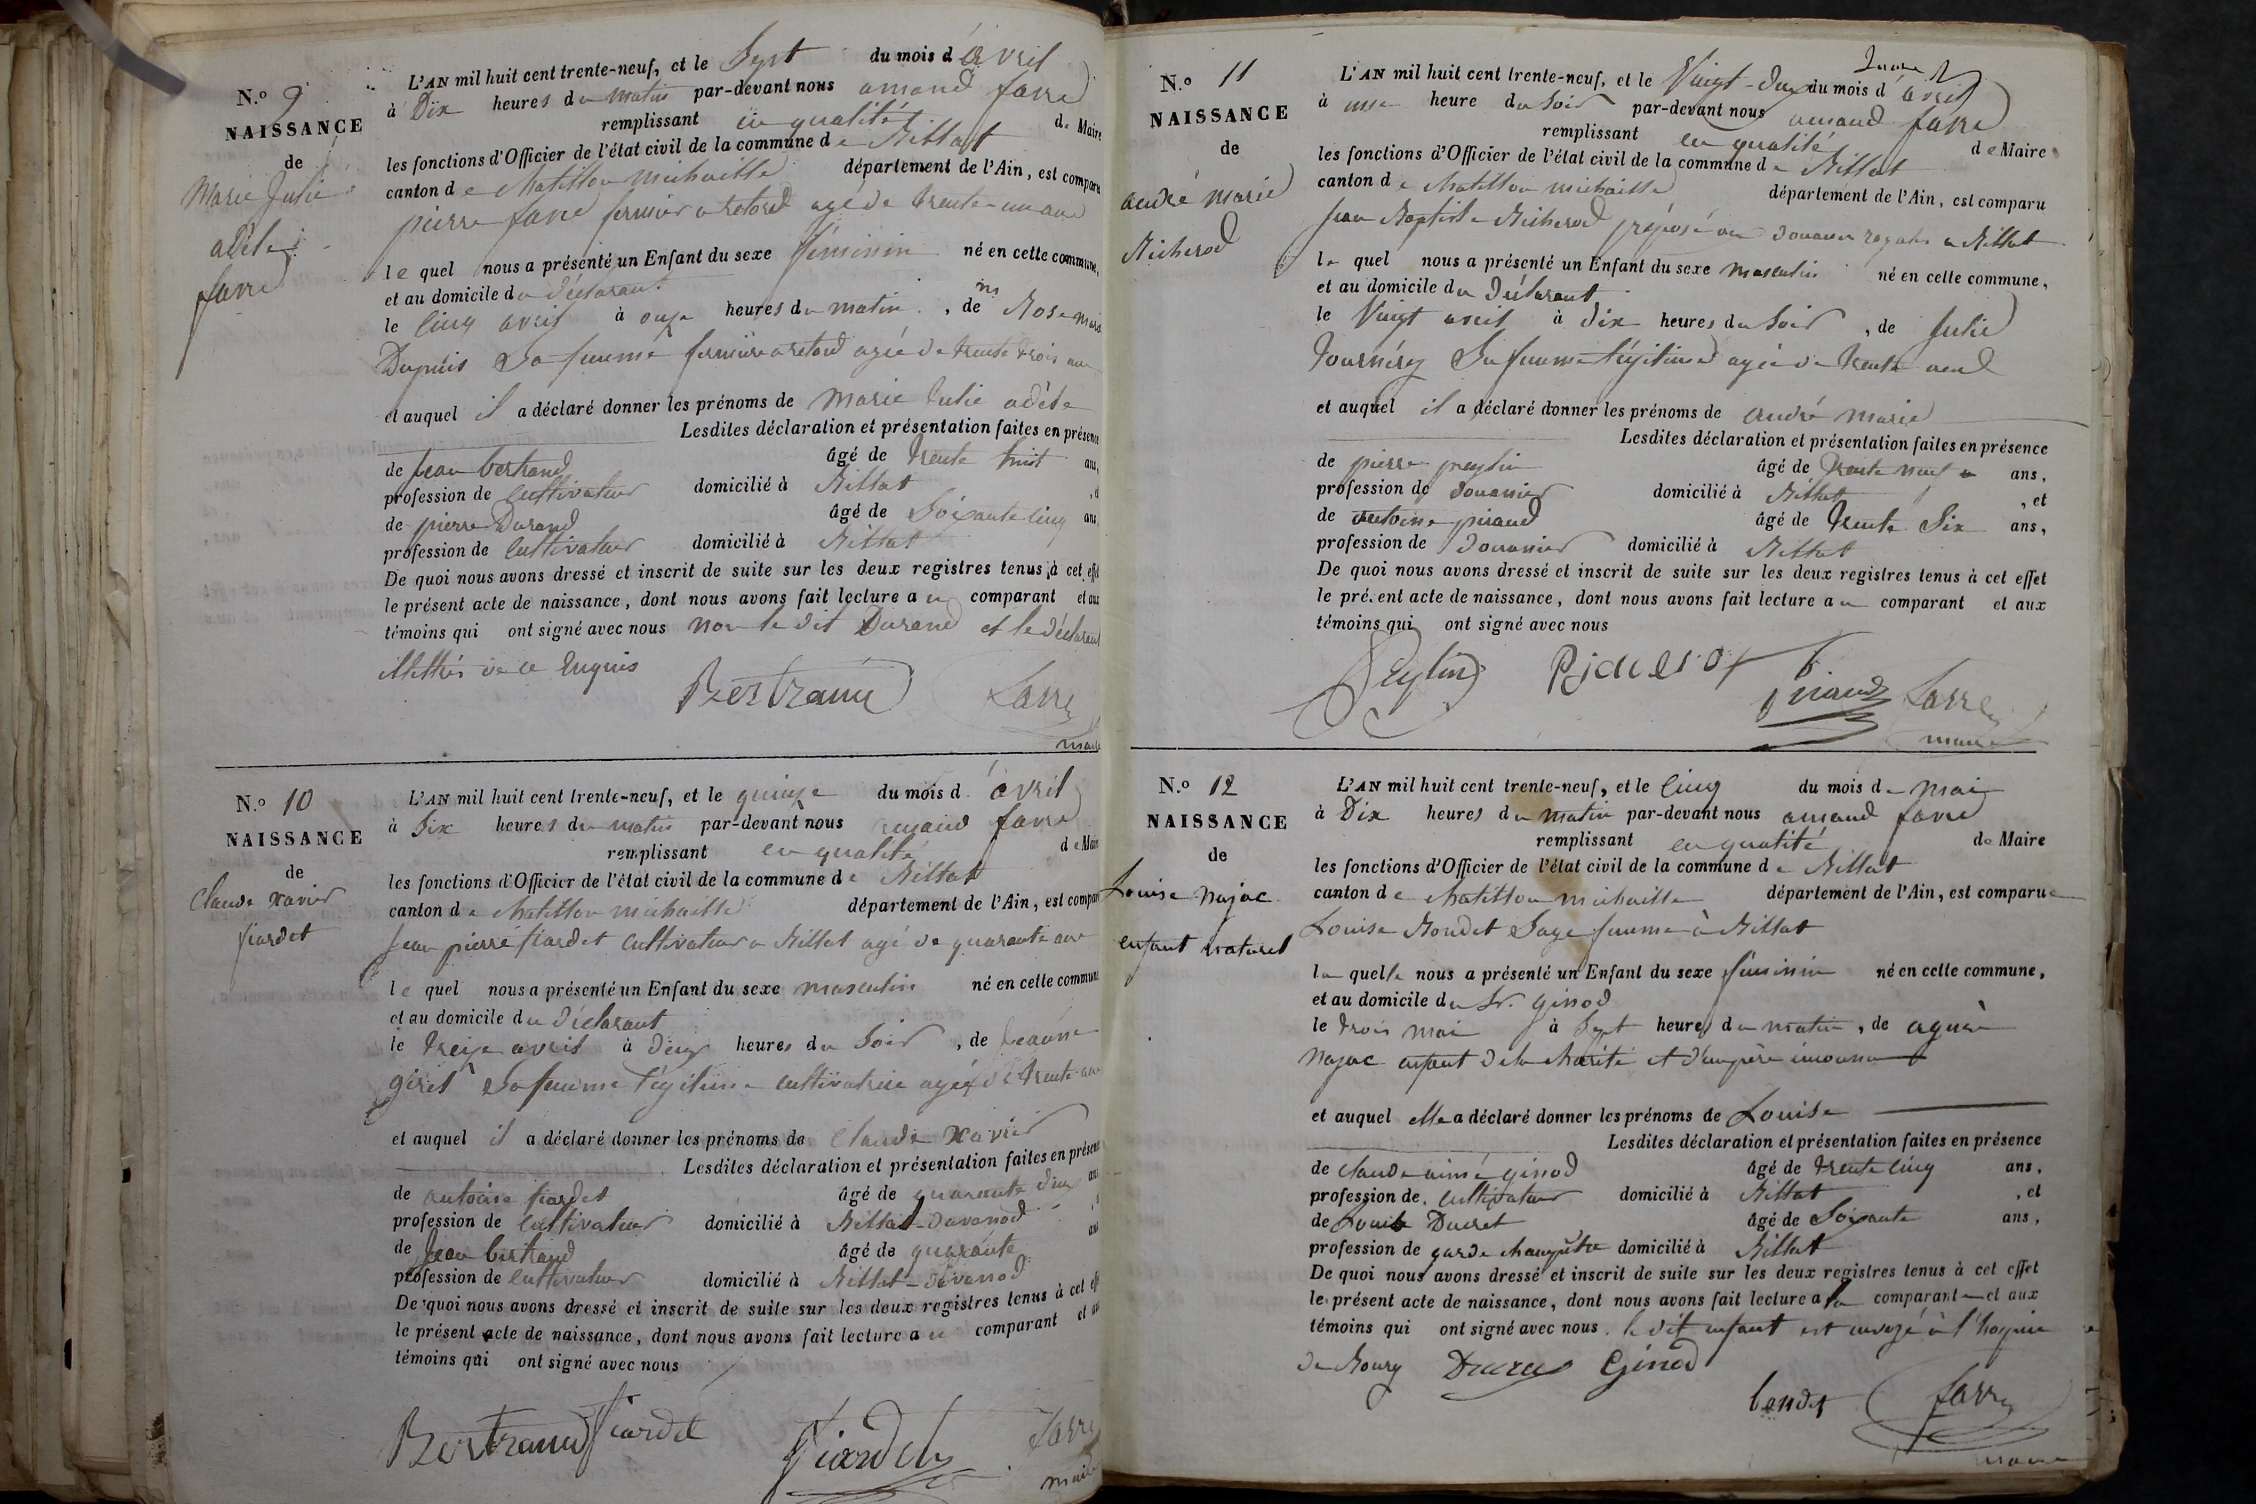 N.° 9
NAISSANCE
de
Marie Julie
adèle
favre
L'AN mil huit cent trente-neuf, et le Sept du mois d'avril
à Dix heures du matin par-devant nous amand favre
remplissant en qualité de Maire
les fonctions d'Officier de l'état civil de la commune de Billiat
canton de chatillon michaille département de l'Ain, est comparu
pierre favre fermier a retord agé de trente un ans
le quel nous a présenté un Enfant du sexe féminin né en cette commune,
et au domicile du déclarant
le cinq avril à onze heures du matin, de Rose marie
Dupuis Sa femme fermière a retord agée de trente trois ans
et auquel il a déclaré donner les prénoms de Marie Julie adèle
Lesdites déclaration et présentation faites en présence
de Jean bertrand âgé de trente huit ans,
profession de Cultivateur domicilié à Billiat, et
de pierre Durand âgé de Soixante cinq ans,
profession de Cultivateur domicilié à Billiat
De quoi nous avons dressé et inscrit de suite sur les deux registres tenus à cet effet
le présent acte de naissance, dont nous avons fait lecture au comparant et aux
témoins qui ont signé avec nous non le dit Durand et le déclarant
illettrés de ce Enquis
Bertrand Favre
maire
N.° 10
NAISSANCE
de
Claude xavier
fiardet
L'AN mil huit cent trente-neuf, et le quinze du mois d'avril
à Dix heures du matin par-devant nous amand favre
remplissant en qualité de Maire
les fonctions d'Officier de l'état civil de la commune de Billiat
canton de chatillon michaille département de l'Ain, est comparu
Jean pierre fiardet Cultivateur a Billiat agé de quarante ans
le quel nous a présenté un Enfant du sexe masculin né en cette commune
et au domicile du déclarant
le treize avril à deux heures du Soir, de Jeanne
giret Sa femme légitime cultivatrice agée de trente ans
et auquel il a déclaré donner les prénoms de Claude xavier
Lesdites déclaration et présentation faites en présence
de antoine fiardet âgé de quarante deux ans
profession de Cultivateur domicilié à Billiat-Davanod
de Jean bertrand âgé de quarante ans
profession de Cultivateur domicilié à Billiat-Davanod
De quoi nous avons dressé et inscrit de suite sur les deux registres tenus à cet effet
le présent acte de naissance, dont nous avons fait lecture au comparant et aux
témoins qui ont signé avec nous
Bertrand fiardet Fiardet Favre
maire
N.° 11
NAISSANCE
de
andré marie
Richerod
L'AN mil huit cent trente-neuf, et le Vingt-deux du mois d'avril
à une heure du Soir par-devant nous amand favre
remplissant en qualité de Maire
les fonctions d'Officier de l'état civil de la commune de Billiat
canton de chatillon michaille département de l'Ain, est comparu
Jean Baptiste Richerod préposé au douanes royales a Billiat
le quel nous a présenté un Enfant du sexe masculin né en cette commune,
et au domicile du déclarant
le Vingt avril à dix heures du Soir, de Julie
Tournéry Sa femme légitime agée de trente neuf
et auquel il a déclaré donner les prénoms de andré marie
Lesdites déclaration et présentation faites en présence
de pierre peyslin âgé de trente neuf ans,
profession de douanier domicilié à Billiat, et
de antoine piraud âgé de trente Six ans,
profession de douanier domicilié à Billiat
De quoi nous avons dressé et inscrit de suite sur les deux registres tenus à cet effet
le présent acte de naissance, dont nous avons fait lecture au comparant et aux
témoins qui ont signé avec nous
piraud Favre
maire
N.° 12
NAISSANCE
de
Louise Najac
enfant naturel
L'AN mil huit cent trente-neuf, et le cinq du mois de mai
à Dix heures du matin par-devant nous amand favre
remplissant en qualité de Maire
les fonctions d'Officier de l'état civil de la commune de Billiat
canton de chatillon michaille département de l'Ain, est comparue
Louise Bondet Sage femme à Billiat
la quelle nous a présenté un Enfant du sexe féminin né en cette commune,
et au domicile du Sr. ginod
le trois mai à Sept heures du matin, de agnès
Najac enfant de la charité et d'un père inconnu
et auquel elle a déclaré donner les prénoms de Louise
Lesdites déclaration et présentation faites en présence
de claude aimé ginod âgé de trente cinq ans,
profession de Cultivateur domicilié à Billiat, et
de Louis Ducret âgé de Soixante ans,
profession de garde champêtre domicilié à Billiat
De quoi nous avons dressé et inscrit de suite sur les deux registres tenus à cet effet
le présent acte de naissance, dont nous avons fait lecture a la comparante et aux
témoins qui ont signé avec nous. le dit enfant est envoyé à l'hospice
de Bourg Ducret Ginod
bondet favre
maire